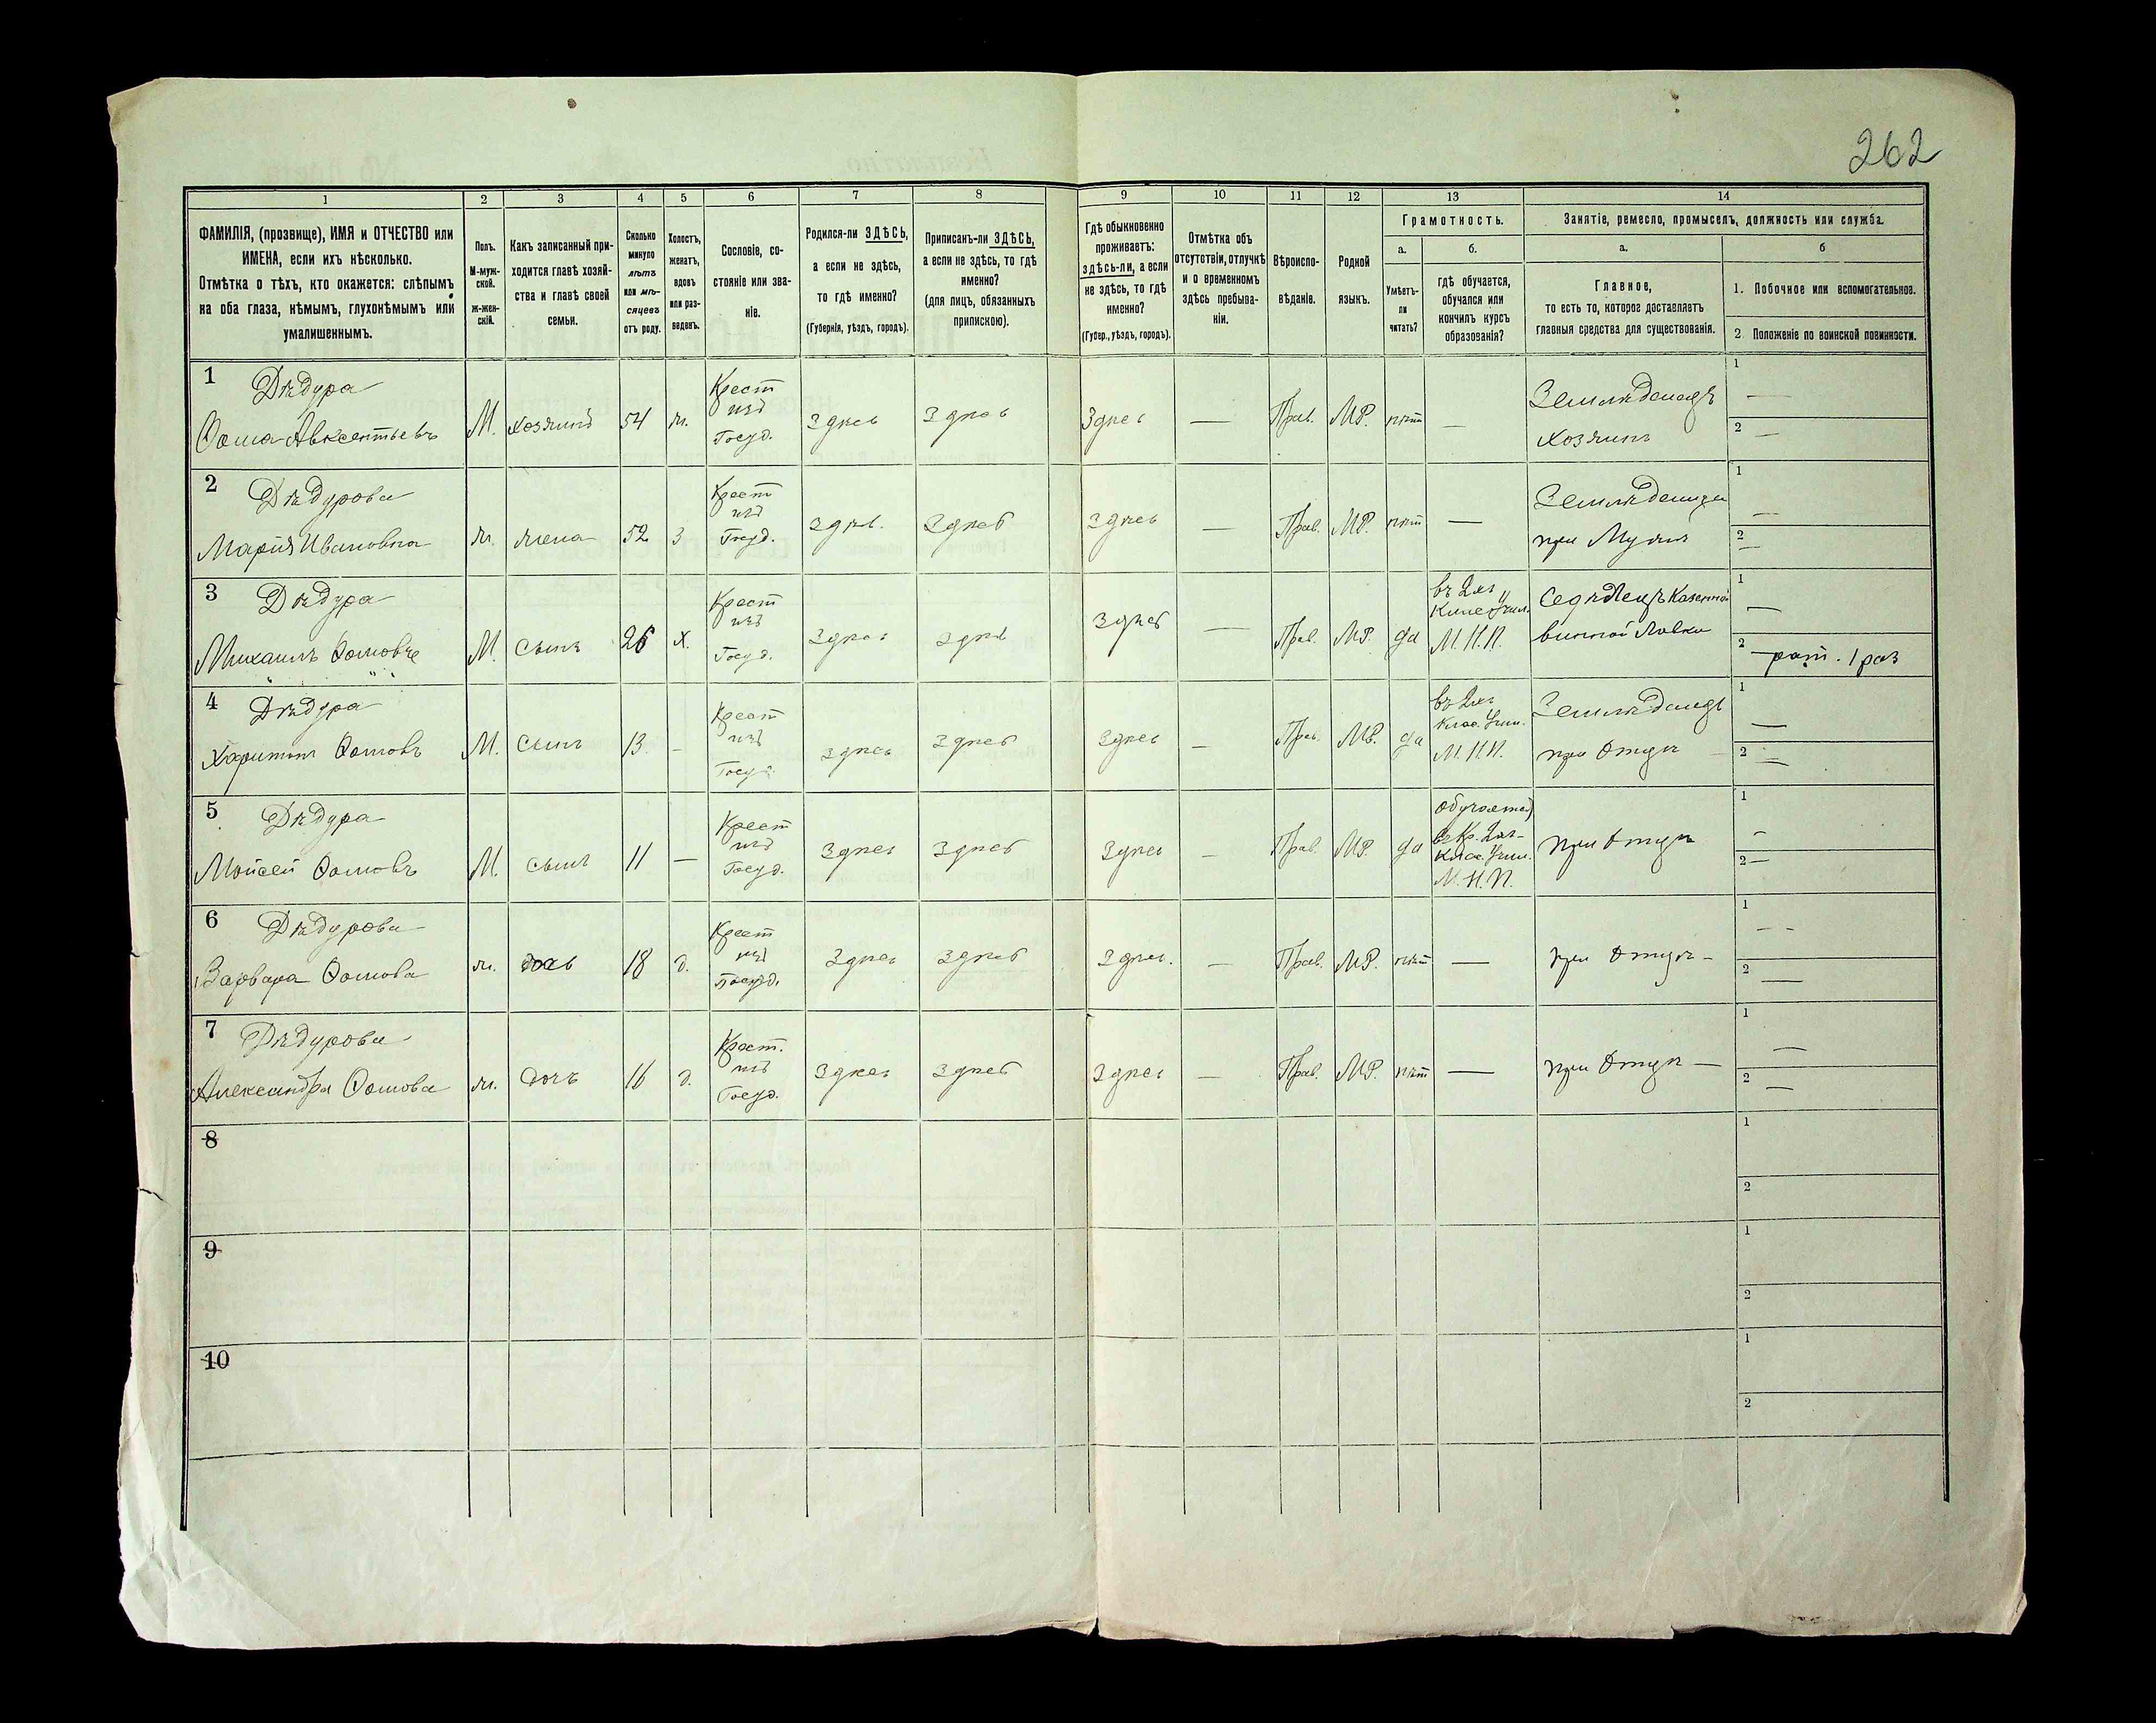 262
1 2 3 4 5 6 7 8 9 10 11 12 13 14
ФАМИЛІЯ, (прозвище), ИМЯ и ОТЧЕСТВО или
ИМЕНА, если ихъ нѣсколько.
Отмѣтка о тѣхъ, кто окажется: слѣпымъ
на оба глаза, нѣмымъ, глухонѣмымъ или
умалишеннымъ.
Полъ.
М-муж-
ской.
Ж-жен-
скій.
Какъ записанный при-
ходится главѣ хозяй-
ства и главѣ своей
семьи.
Сколько
минуло
лѣтъ
или мѣ-
сяцевъ
отъ роду.
Холостъ,
женатъ,
вдовъ
или раз-
веденъ.
Сословіе, со-
стояніе или зва-
ніе.
Родился-ли ЗДѢСЬ,
а если не здѣсь,
то гдѣ именно?
(Губернія, уѣздъ, городъ).
Приписанъ-ли ЗДѢСЬ,
а если не здѣсь, то гдѣ
именно?
(для лицъ, обязанныхъ
припискою).
Гдѣ обыкновенно
проживаетъ:
здѣсь-ли, а если
не здѣсь, то гдѣ
именно?
(Губер., уѣздъ, городъ).
Отмѣтка объ
отсутствіи, отлучкѣ
и о временномъ
здѣсь пребыва-
ніи.
Вѣроиспо-
вѣданіе.
Родной
языкъ.
Грамотность.
а.
Умѣетъ-
ли
читать?
б.
гдѣ обучается,
обучался или
кончилъ курсъ
образованія?
Занятіе, ремесло, промыселъ, должность или служба.
а.
Главное,
то есть то, которое доставляетъ
главныя средства для существованія.
б
1. Побочное или вспомогательное.
2. Положеніе по воинской повинности.
1 Дѣдура
Ѳома Авксентьевъ
М. Хозяинъ 54 ж.
Крест
изъ
Госуд.
Здѣсь Здѣсь Здѣсь — Прав. МР. нѣт —
Землѣделецъ
Хозяинъ
1 —
2 —
2 Дѣдурова
Марія Ивановна
ж. жена 52 З
Крест
изъ
Госуд.
Здѣс. Здѣсь Здѣсь — Прав. МР. нѣт —
Землѣделица
при Мужѣ
1 —
2 —
3 Дѣдура
Михаилъ Ѳомовъ
М. Сынъ 26 х.
Крест
изъ
Госуд.
Здѣсь Здѣсь Здѣсь — Прав. МР. да
въ 2хъ
Клас. Учил.
М.Н.П.
Седѣлецъ Казенной
винной Лавки
1 —
2 — рат. 1 раз
4 Дѣдура
Харитонъ Ѳомовъ
М. Сынъ 13. -
Крест
изъ
Госуд.
Здѣсь Здѣсь Здѣсь — Прав. МР. да
въ 2хъ
Клас. Учил.
М.Н.П.
Землѣделецъ
при Отцѣ
1 —
2 —
5 Дѣдура
Мойсей Ѳомовъ
М. сынъ 11 —
Крест
изъ
Госуд.
Здѣсь Здѣсь Здѣсь — Прав. МР. да
Обучается
въ Кр. 2хъ-
Клас. Учил.
М.Н.П.
при Отцѣ
1 —
2 —
6 Дѣдурова
Варвара Ѳомова
ж. дочь 18 д.
Крест
изъ
Госуд.
Здѣсь Здѣсь Здѣс. — Прав. МР. нѣт —
при Отцѣ —
1 — -
2 —
7 Дѣдурова
Александра Ѳомова
ж. Дочь 16 д.
Крест.
изъ
Госуд.
Здѣсь Здѣсь Здѣсь — Прав. МР. нѣт —
при Отцѣ —
1 —
2 —
8
1
2
9
1
2
10
1
2